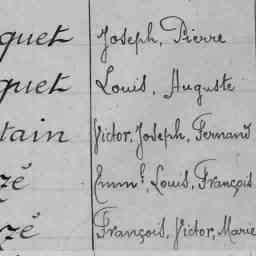 quet Joseph, Pierre
quet Louis, Auguste
tain Victor, Joseph, Fernand
zé Emm.l, Louis, François
zé François, Victor, Marie